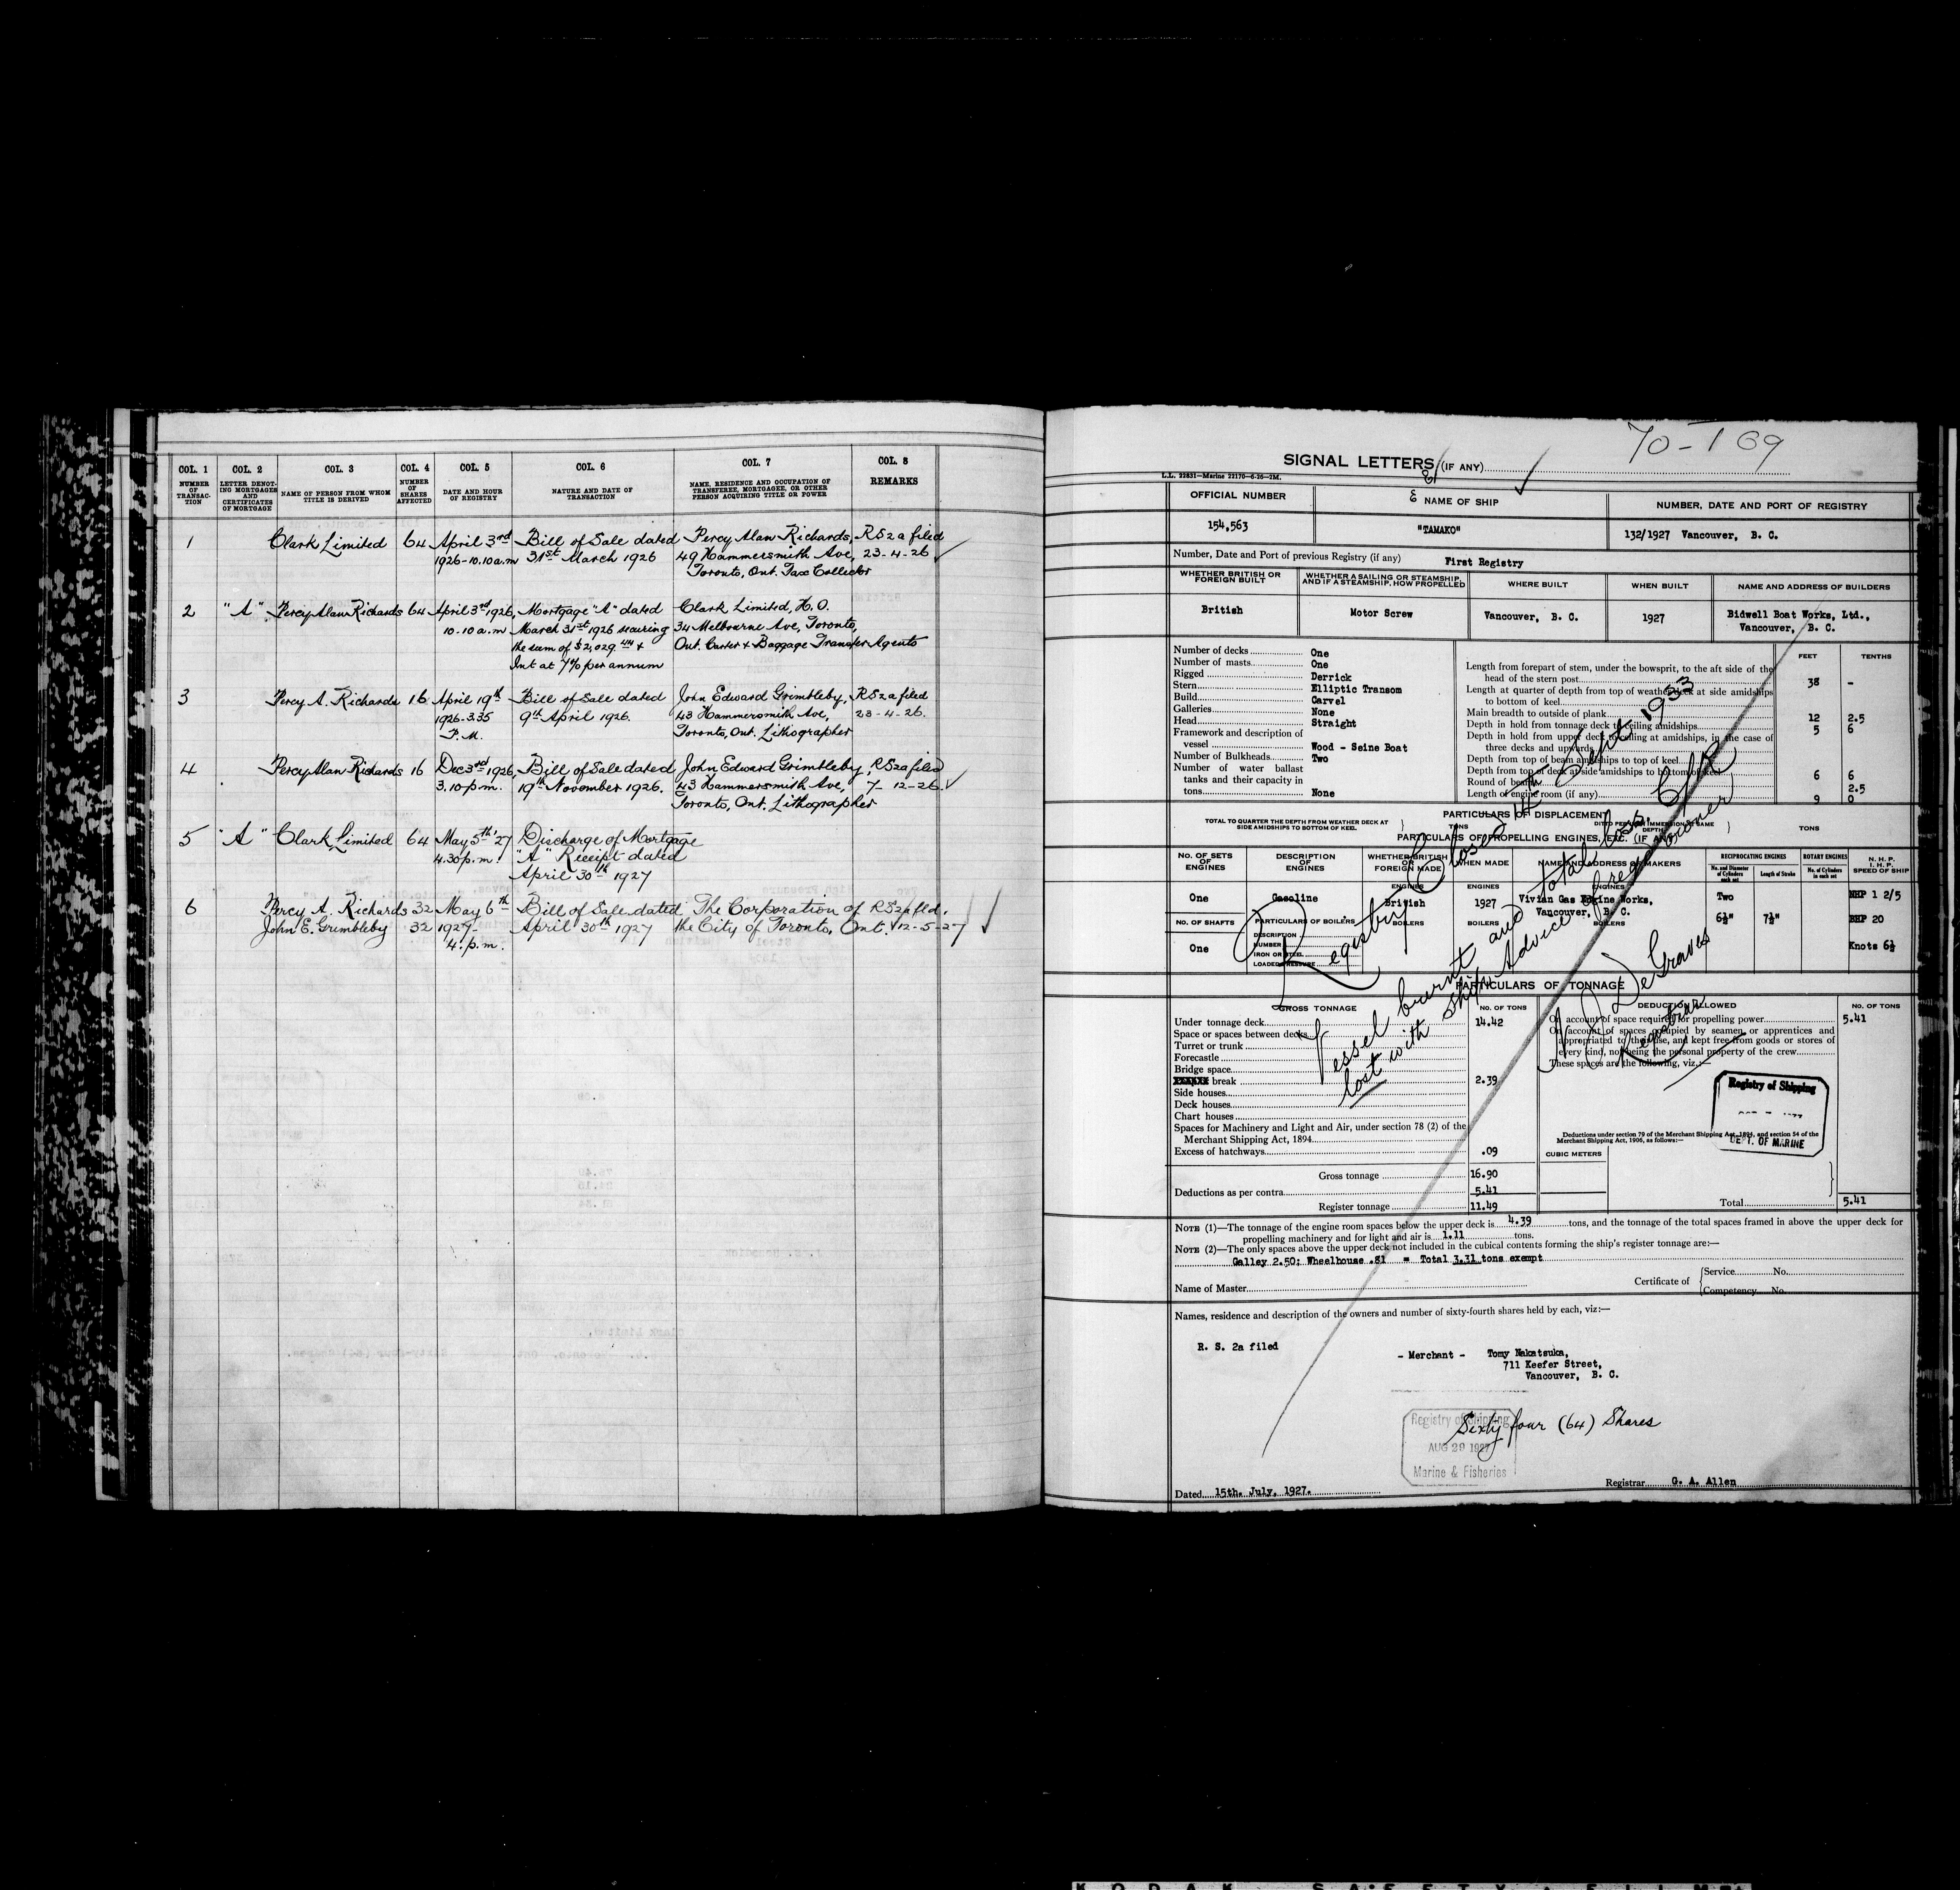 COL. 1 COL. 2 COL. 3 COL. 4 COL. 5 COL. 6 COL. 7 COL. 8
NUMBER OF TRANSAC- TION
LETTER DENOT- ING MORTGAGES AND CERTIFICATES OF MORTGAGE
NAME OF PERSON FROM WHOM TITLE IS DERIVED
NUMBER OF SHARES AFFECTED
DATE AND HOUR OF REGISTRY
NATURE AND DATE OF TRANSACTION
NAME, RESIDENCE AND OCCUPATION OF TRANSFEREE, MORTGAGEE, OR OTHER PERSON ACQUIRING TITLE OR POWER
REMARKS
1 Clark Limited 64 April 3rd Bill of Sale dated Percy Alan Richards, RS2a filed
1926-10.10 a.m 31st March 1926 49 Hammersmith Ave, 23-4-26
Toronto, Ont. Tax Collector
2 "A" Percy Alan Richards 64 April 3rd 1926, Mortgage "A" dated Clark Limited, H.O.
10-10 a.m March 31st 1926 securing 34 Melbourne Ave, Toronto,
the sum of $2,029 44 & Ont. Carter & Baggage Transfer Agents
Int at 7% per annum
3 Percy A. Richards 16 April 19th Bill of Sale dated John Edward Grimbleby, RS2a filed
1926-3.35 9th April 1926. 43 Hammersmith Ave, 23-4-26.
P.M. Toronto, Ont. Lithographer
4 Percy Alan Richards 16 Dec 3rd 1926, Bill of Sale dated John Edward Grimbleby, RS2a filed
3.10 p.m. 19th November 1926. 43 Hammersmith Ave, 7-12-26.
Toronto, Ont. Lithographer
5 "A" Clark Limited 64 May 5th '27 Discharge of Mortgage
4.30 p.m. "A" Receipt dated
April 30th 1927
6 Percy A. Richards 32 May 6th Bill of Sale dated The Corporation of RS2a fld.
John E. Grimbleby 32 1927- April 30th 1927 the City of Toronto, Ont. 12-5-27
4. p.m.
70-169
SIGNAL LETTERS (IF ANY)
L.L. 22831—Marine 22170-6-26-2M.
OFFICIAL NUMBER NAME OF SHIP NUMBER, DATE AND PORT OF REGISTRY
154,563 "TAMAKO" 132/1927 Vancouver, B. C.
Number, Date and Port of previous Registry (if any) First Registry
WHETHER BRITISH OR FOREIGN BUILT
WHETHER A SAILING OR STEAMSHIP, AND IF A STEAMSHIP, HOW PROPELLED
WHERE BUILT WHEN BUILT NAME AND ADDRESS OF BUILDERS
British Motor Screw Vancouver, B. C. 1927 Bidwell Boat Works, Ltd.,
Vancouver, B. C.
Number of decks One
Number of masts One
Rigged Derrick
Stern Elliptic Transom
Build Carvel
Galleries None
Head Straight
Framework and description of
vessel Wood - Seine Boat
Number of Bulkheads Two
Number of water ballast
tanks and their capacity in
tons None
FEET TENTHS
Length from forepart of stem, under the bowsprit, to the aft side of the
head of the stern post 38 -
Length at quarter of depth from top of weather deck at side amidships
to bottom of keel
Main breadth to outside of plank 12 2.5
Depth in hold from tonnage deck to ceiling amidships 5 6
Depth in hold from upper deck to ceiling at amidships, in the case of
three decks and upwards
Depth from top of beam amidships to top of keel
Depth from top of deck at side amidships to bottom of keel 6 6
Round of beam 2.5
Length of engine room (if any) 9 0
PARTICULARS OF DISPLACEMENT
TOTAL TO QUARTER THE DEPTH FROM WEATHER DECK AT SIDE AMIDSHIPS TO BOTTOM OF KEEL TONS DITTO PER INCH IMMERSION AT SAME DEPTH TONS
PARTICULARS OF PROPELLING ENGINES, ETC. (IF ANY)
NO. OF SETS OF ENGINES
DESCRIPTION OF ENGINES
WHETHER BRITISH OR FOREIGN MADE
WHEN MADE
NAME AND ADDRESS OF MAKERS
RECIPROCATING ENGINES
No. and Diameter of Cylinders each set Length of Stroke
ROTARY ENGINES
No. of Cylinders in each set
N. H. P. I. H. P. SPEED OF SHIP
ENGINES ENGINES ENGINES
One Gasoline British 1927 Vivian Gas Engine Works, Two NHP 1 2/5
Vancouver, B. C.
NO. OF SHAFTS PARTICULARS OF BOILERS BOILERS BOILERS BOILERS 6½" 7½" BHP 20
One DESCRIPTION
NUMBER
IRON OR STEEL
LOADED PRESSURE
Knots 6½
PARTICULARS OF TONNAGE
GROSS TONNAGE NO. OF TONS DEDUCTION ALLOWED NO. OF TONS
Under tonnage deck 14.42
Space or spaces between decks
Turret or trunk
Forecastle
Bridge space
break 2.39
Side houses
Deck houses
Chart houses
Spaces for Machinery and Light and Air, under section 78 (2) of the
Merchant Shipping Act, 1894
Excess of hatchways .09
Gross tonnage 16.90
Deductions as per contra 5.41
Register tonnage 11.49
On account of space required for propelling power 5.41
On account of spaces occupied by seamen or apprentices and
appropriated to their use, and kept free from goods or stores of
every kind, not being the personal property of the crew
These spaces are the following, viz.:—
Registry of Shipping
DEPT. OF MARINE
Deductions under section 79 of the Merchant Shipping Act, 1894, and section 54 of the
Merchant Shipping Act, 1906, as follows:—
CUBIC METERS
Total 5.41
Registry Closed 14th Sept 1933
Vessel burnt and total loss. C of R
lost with ship. Advice of reg. owner
DeGraves
Registrar
NOTE (1)—The tonnage of the engine room spaces below the upper deck is 4.39 tons, and the tonnage of the total spaces framed in above the upper deck for
propelling machinery and for light and air is 1.11 tons.
NOTE (2)—The only spaces above the upper deck not included in the cubical contents forming the ship's register tonnage are:—
Galley 2.50; Wheelhouse .81 = Total 3.31 tons exempt
Name of Master
Certificate of Service No.
Competency No.
Names, residence and description of the owners and number of sixty-fourth shares held by each, viz:—
R. S. 2a filed
- Merchant - Tomy Nakatsuka,
711 Keefer Street,
Vancouver, B. C.
Sixty four (64) Shares
Registry of Shipping
AUG 29 1927
Marine & Fisheries
Dated 15th. July. 1927. Registrar G. A. Allen
KODAK SAFETY FILM